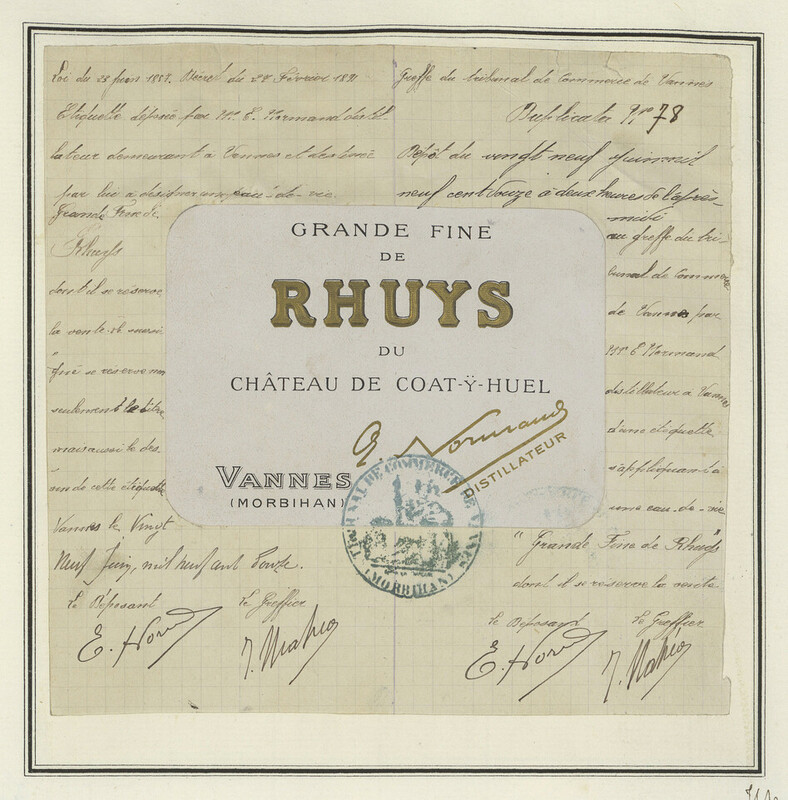 Loi du 23 Juin 1857. Décret du 27 Février 1891
Etiquette déposée par Mr E. Normand distil
lateur demeurant à Vannes et destinée
par lui à désigner une eau-de-vie
Grande Fine de
Rhuys
dont il se réserve
la vente
se réserve non
seulement le titre
mais aussi le des
sin de cette étiquette
Vannes le Vingt
Neuf Juin, mil neuf cent Douze.
Le Déposant Le Greffier
E. Nor J. Mahéo
Greffe du tribunal de Commerce de Vannes
Duplicata No 78
Dépôt du vingt neuf Juin mil
neuf cent douze à deux heures de l'après-
midi
au greffe du tri-
bunal de Commerce
de Vannes par
Mr E Normand
distillateur à Vannes
d'une étiquette
s'appliquant à
une eau-de-vie
"Grande Fine de Rhuys"
dont il se réserve la vente
Le Déposant Le Greffier
E. Nor J. Mahéo
GRANDE FINE
DE
RHUYS
DU
CHÂTEAU DE COAT-Ÿ-HUEL
E. Normand
DISTILLATEUR
VANNES
(MORBIHAN)
TRIBUNAL DE COMMERCE DE VANNES
(MORBIHAN)